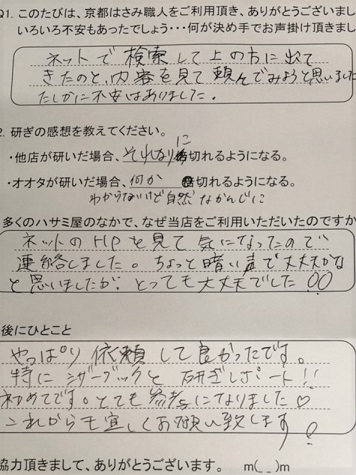 Q1. このたびは、京都はさみ職人をご利用頂き、ありがとうございまし
いろいろ不安もあったでしょう・・・何が決め手でお声掛け頂きまし
ネットで検索して上の方に出て
きたのと、内容を見て頼んでみようと思いました
たしかに不安はありました。
2. 研ぎの感想を教えてください。
・他店が研いだ場合、それなりに切れるようになる。
・オオタが研いだ場合、何か切れるようになる。
わからないけど自然なかんじに
多くのハサミ屋のなかで、なぜ当店をご利用いただいたのですか
ネットのHPを見て気になったので
連絡しました。ちょっと暗い声で大丈夫かな
と思いましたが、とっても大丈夫でした
後にひとこと
やっぱり依頼して良かったです。
特にシザーブックと研ぎレポート!!
初めてです。とても参考になりました♡
これからも宜しくお願い致します
協力頂きまして、ありがとうございます。 m(_ _)m